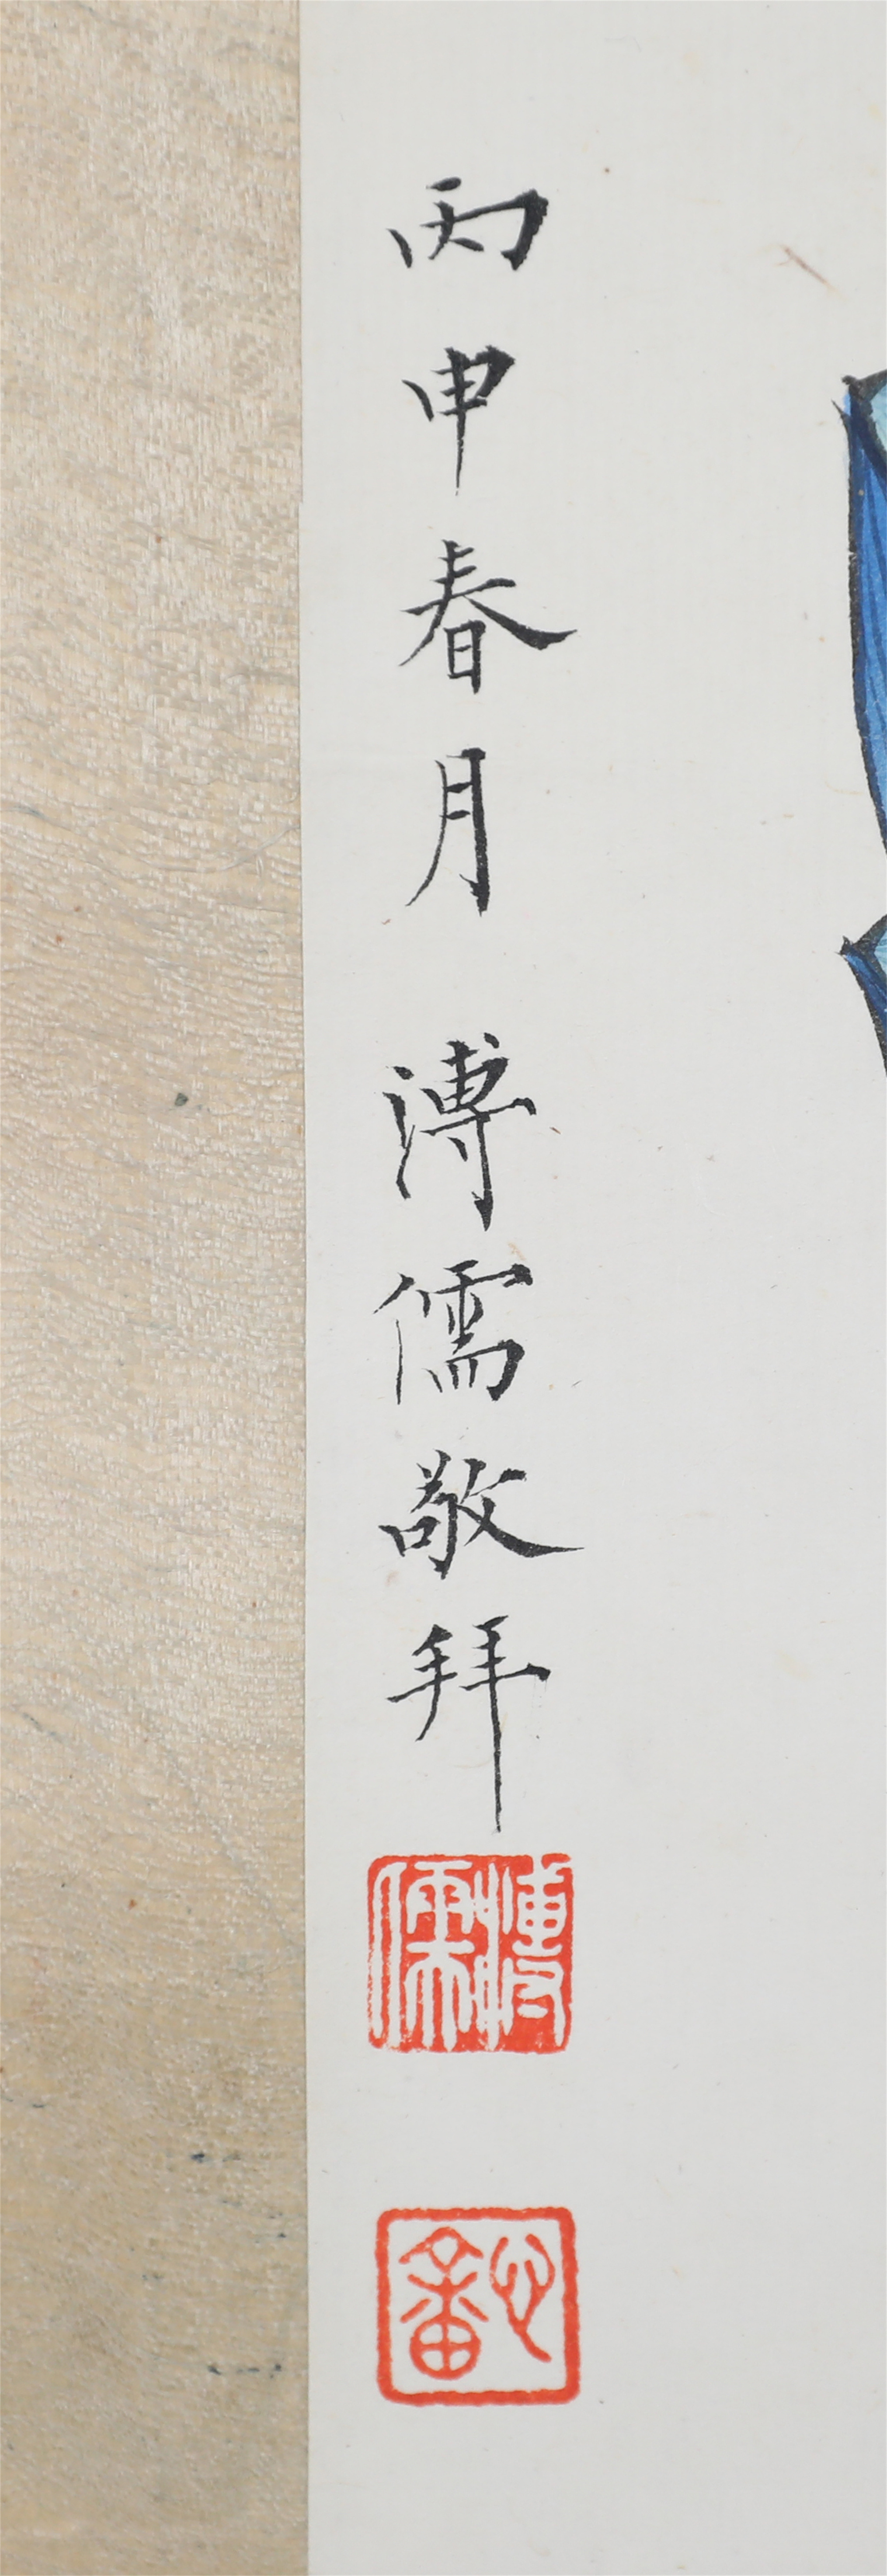 丙申春月 溥儒敬拜
溥儒
心畬